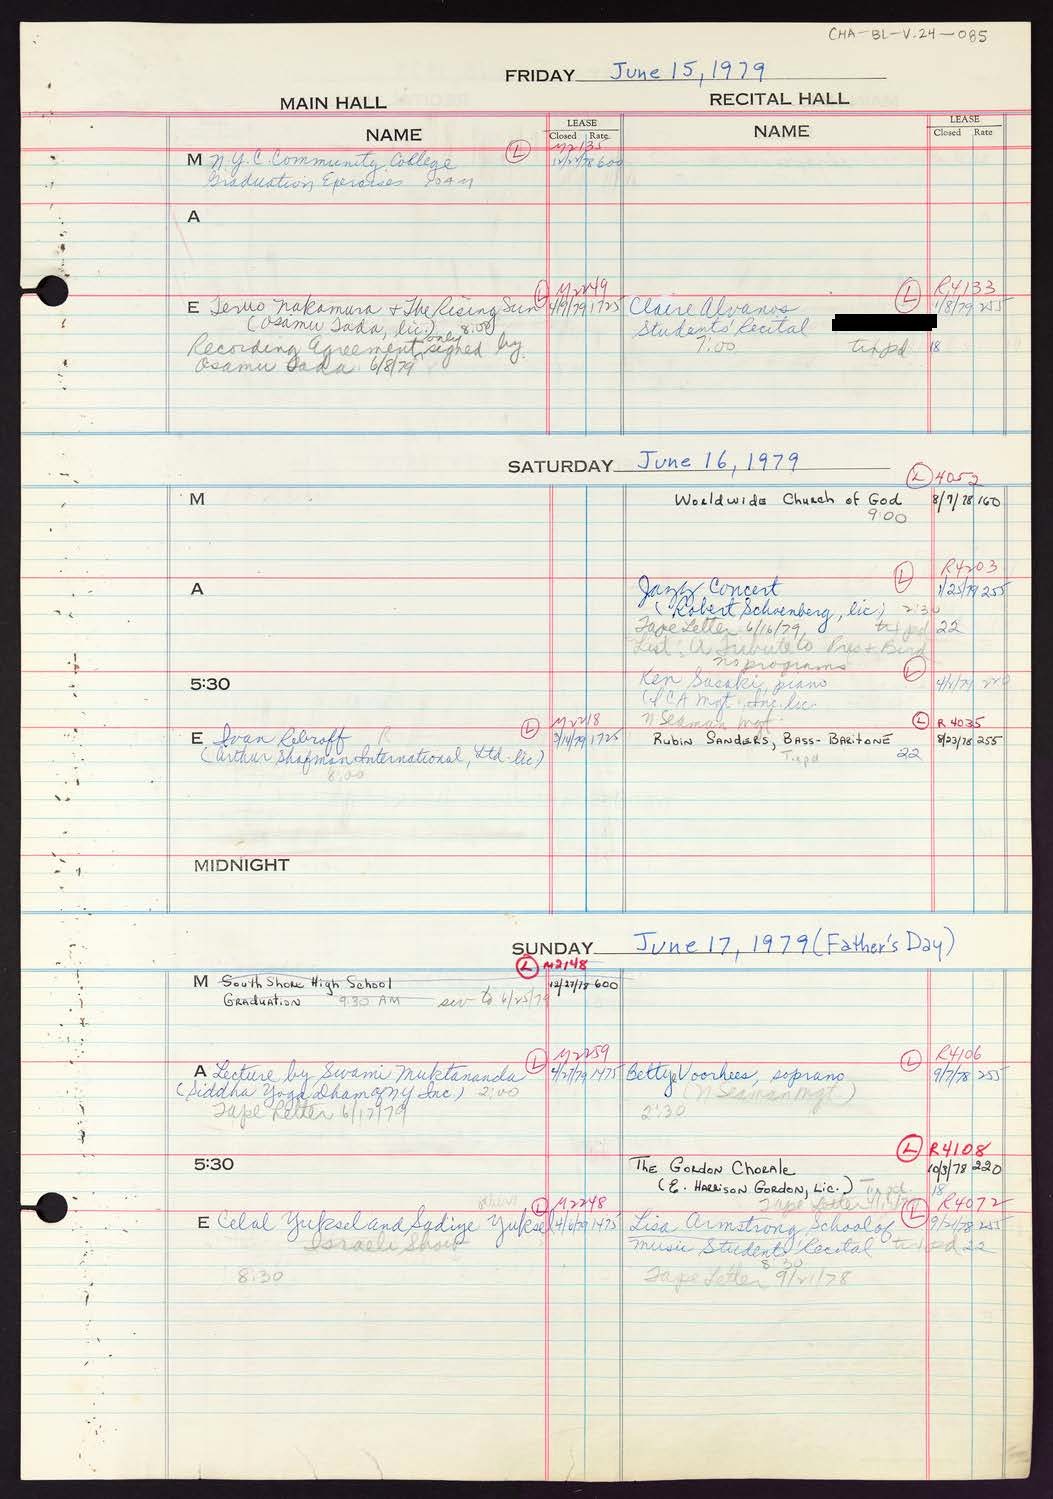 CHA-BL-V.24-085
FRIDAY June 15, 1979
MAIN HALL
RECITAL HALL
NAME
LEASE
Closed Rate
NAME
LEASE
Closed Rate
L M2135
M N.Y.C. Community College 12/27/78 600
Graduation Exercises 10 AM
A
L M2249
L R4133
E Teruo Nakamura + The Rising Sun 4/9/79 1725
(Osamu Tada, lic.) 8:00
Recording Agreement only signed by
Osamu Tada 6/8/79
Claire Alvanos 1/8/79 255
Students' Recital
7:00 tix pd 18
SATURDAY June 16, 1979
L 4052
M
Worldwide Church of God 8/7/78 160
9:00
L R4203
A
Jazz Concert 1/25/79 255
(Robert Schoenberg, lic.) 2:30
Tape Letter 6/16/79 tix pd 22
List: A Tribute to Pres + Bird
no programs
L
5:30
Ken Sasaki, piano
Mgt. Inc. lic.
N Seaman Mgt.
L M2218
L R4035
E Ivan Rebroff R 3/14/79 1725
(Arthur Shafman International, Ltd. lic)
8:00
Rubin Sanders, Bass-Baritone 8/23/78 255
Tix pd 22
MIDNIGHT
SUNDAY June 17, 1979 (Father's Day)
L M2148
M South Shore High School 12/27/78 600
Graduation 9:30 AM to 6/25/79
L M2259
L R4106
A Lecture by Swami Muktananda 4/27/79 1475
(Siddha Yoga Dham of NY Inc.) 2:00
Tape Letter 6/17/79
Betty Voorhees, soprano 9/7/78 255
(N Seaman Mgt.)
2:30
L R4108
5:30
The Gordon Chorale 10/3/78 220
(E. Harrison Gordon, Lic.) Tix pd 18
Tape Letter
L M2248
L R4072
E Celal Yuksel and Sadiye Yuksel 4/6/79 1475
Israeli Show
8:30
Lisa Armstrong School of 9/21/78 255
Music Students' Recital tix pd 22
8:30
Tape Letter 9/21/78